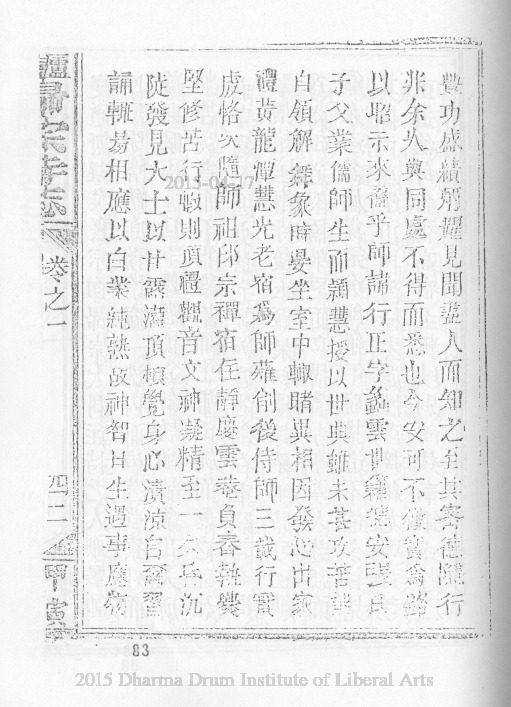 豐功盛績炳耀見聞盡人而知之至其密德隱行
非余人與同處不得而悉也今安可不徵實為銘
以昭示來裔乎師諱行正字彝雲世籍建安張氏
子父業儒師生而穎慧授以世典雖未甚攻苦
白領解舞象時晏坐室中輒睹異相因發心出家
禮黃龍僤慧光老宿為師薙剃後侍師三載行實
虔恪次隨師祖邱宗禪宿住靜慶雲菴負舂執爨
堅修苦行暇則頂禮觀音文神凝精至一夕昏沉
陡發見大士以甘露灌頂頓覺身心清涼自爾習
誦輒易相應以白業純熟故神智日生遇事應物
卷之一
四二
甲寅
83
2015-04-17
2015 Dharma Drum Institute of Liberal Arts